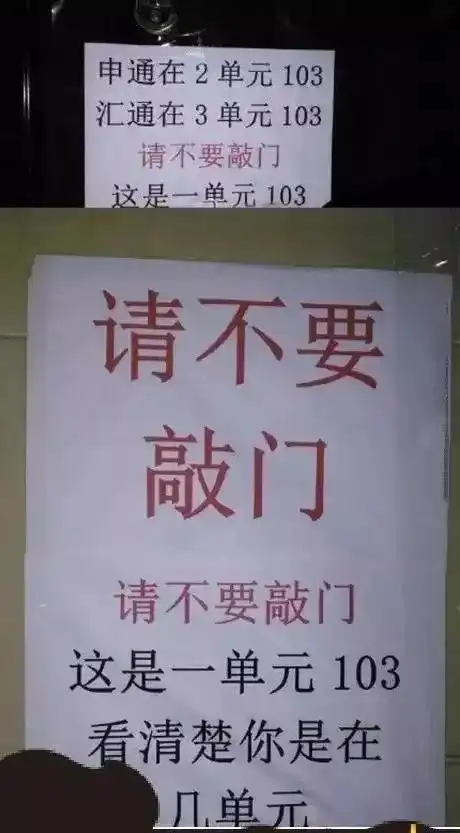 申通在2单元103
汇通在3单元103
请不要敲门
这是一单元103
请不要
敲门
请不要敲门
这是一单元103
看清楚你是在
几单元